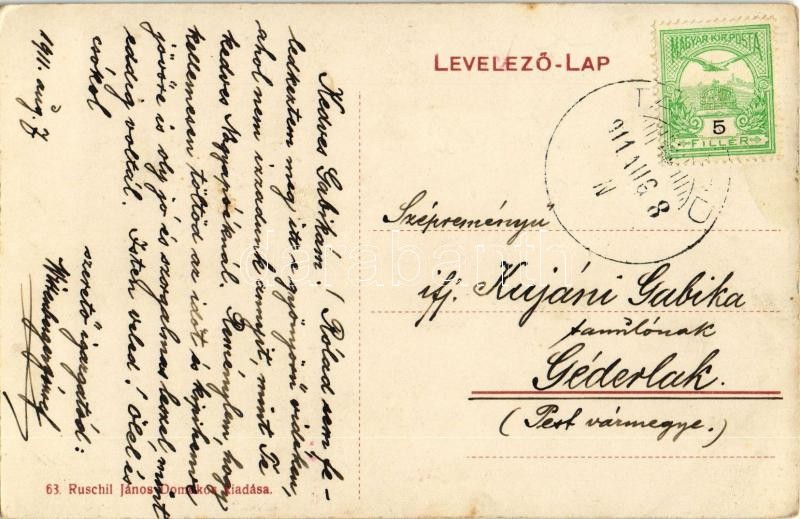 LEVELEZŐ-LAP
MAGYAR KIR. POSTA
5
FILLÉR
911 AUG 8
N
Szépreményű
ifj. Kujáni Gabika
tanulónak
Géderlak.
(Pest vármegye.)
Kedves Gabikám! Rólad sem fe-
ledkeztem meg itt e gyönyörű vidéken,
ahol nem izzadunk annyit, mint Te
kedves Nagyapóéknál. Reménylem, hogy
kellemesen töltöd az időt és kipihenve
jövőre is oly jó és szorgalmas leszel, mint
eddig voltál. Isten veled! Ölel és
csókol
szerető igazgatód:
1911. aug. 7
63. Ruschil János Domokos kiadása.
darabanth